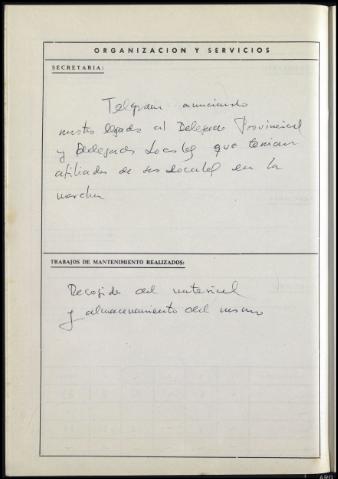 ORGANIZACION Y SERVICIOS
SECRETARIA:
Telegrama anunciando
nuestra llegada al Delegado Provincial
y Delegados Locales que tenian
afiliados de sus localid en la
marcha
TRABAJOS DE MANTENIMIENTO REALIZADOS:
Recogida del material
y almacenamiento del mismo